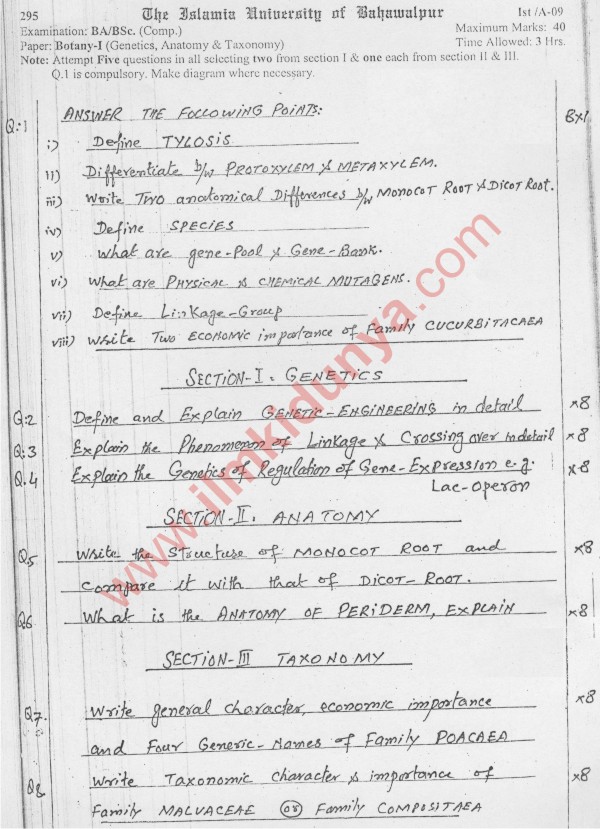 295 The Islamia University of Bahawalpur Ist /A-09
Examination: BA/BSc. (Comp.) Maximum Marks: 40
Paper: Botany-I (Genetics, Anatomy & Taxonomy) Time Allowed: 3 Hrs.
Note: Attempt Five questions in all selecting two from section I & one each from section II & III.
Q.1 is compulsory. Make diagram where necessary.
Q:1 ANSWER THE FOLLOWING POINTS: 8x1
i) Define TYLOSIS
ii) Differentiate b/w PROTOXYLEM & METAXYLEM.
iii) Write Two anatomical Differences b/w MONOCOT ROOT & DICOT ROOT.
iv) Define SPECIES
v) What are gene-Pool & Gene-Bank.
vi) What are PHYSICAL & CHEMICAL MUTAGENS.
vii) Define Linkage-Group
viii) Write Two ECONOMIC importance of Family CUCURBITACAEA
SECTION-I: GENETICS
Q.2 Define and Explain GENETIC-ENGINEERING in detail x8
Q.3 Explain the Phenomenon of Linkage & Crossing over in detail x8
Q.4 Explain the Genetics of Regulation of Gene-Expression e.g: x8
Lac-operon
SECTION-II: ANATOMY
Q5 Write the structure of MONOCOT ROOT and x8
compare it with that of DICOT-ROOT.
Q6 What is the ANATOMY OF PERIDERM, EXPLAIN x8
SECTION-III TAXONOMY
Q7. Write general character, economic importance x8
and Four Generic-Names of Family POACAEA
Q8 Write Taxonomic character & importance of x8
Family MALVACEAE OR Family COMPOSITAEA
www.ilmkidunya.com